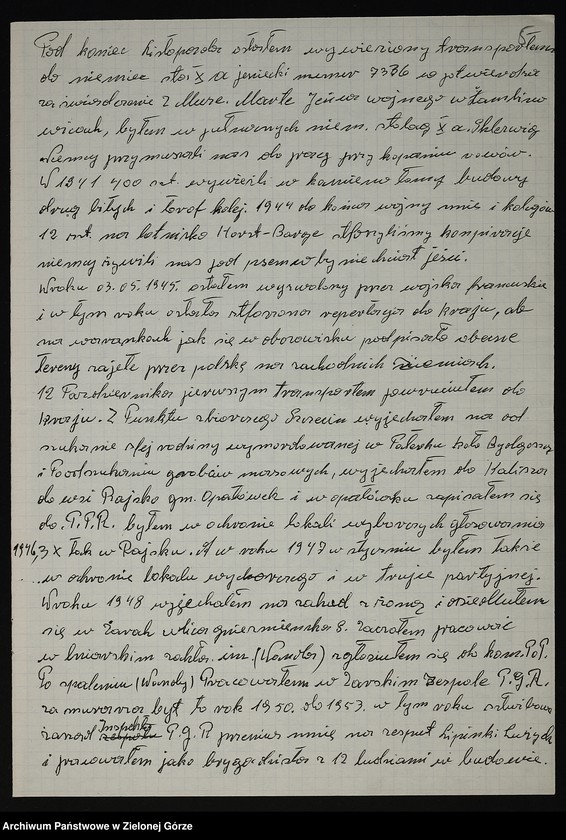 5
Pod koniec listopada ostałem wywieziony transportem
do niemiec stal X a jeniecki numer 7336 co potwierdza
zaświadczenie z Muze. Martr. Jeńca wojennego w Łambino
wicach, byłem w niem. stalag X a.
Niemcy przymusili nas do pracy przy kopaniu rowów.
W 1941 400 szt. wywieźli w kamieno łomy budowy
drug bitych i torof kolej. 1944 do końca wojny mnie i kolegów
12 szt. na lotnisko Horst- stforzyliśmy konspiracje
niemcy żywili nas pod psem by nie dawał jeści.
W roku 03.05.1945. ostałem wyzwolony przez wojska
i w tym roku ostała stforzona repertacja do kraju, ale
na warunkach jak się w oborowisku podpisało obecne
tereny zajęte przez polskę na zachodnich ziemiach.
12 Pazdziernika pierwszym transportem powruciełem do
kraju. Z Punktu zbiorczego Szczecin wyjechałem na od
szukanie sfej rodziny wymordowanej w koło Bydgoszcz
i Poodszukaniu grobów masowych, wyjechałem do Kalisza
do wsi Rajsko gm. Opatówek i w opatówku zapisałem się
do P.P.R. byłem w ochranie lokali wyborczych głosowania
1946, 3 X tak w Rajsku. A w roku 1947 w styczniu byłem także
w ochronie lokalu wyborczego i w trujce partyjnej.
W roku 1948 wyjechałem na zachud z żoną i osiedliłem
się w Żarach ulica gnieznienska 8. Zaczołem pracować
w lniarskim zakła. im. (Wandła) zgłosiułem się do kom. P.P.
Po spaleniu (Wandy) Pracowałem w Żarskim Zespole P.G.R.
za murarza był to rok 1950. do 1953. w tym roku
zarzod Inspekto P.G.R przenius mnie na zesput Lipinki Łużyck
i pracowałem jako brygadzista z 12 ludziami w budowie.
Archiwum Państwowe w Zielonej Górze